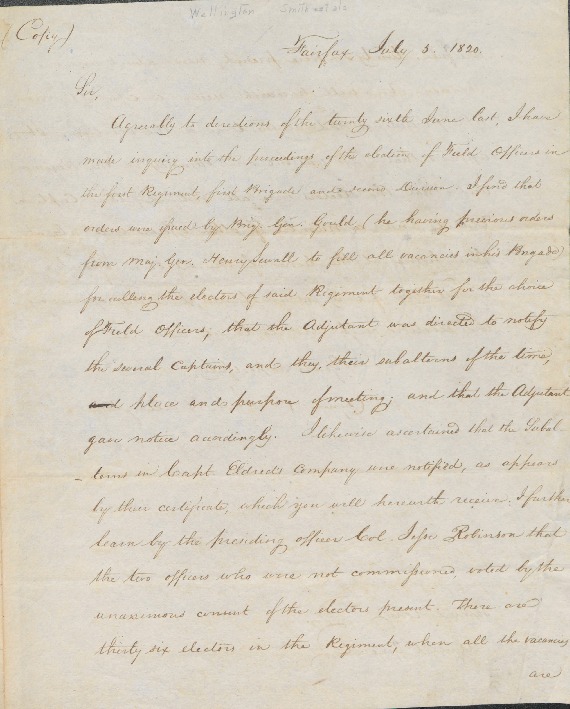 Wellington Smith et als
(Copy)
Fairfax July 3. 1820.
Sir,
Agreeably to directions of the twenty sixth June last, I have
made inquiry into the proceedings of the election of Field Officers in
the first Regiment, first Brigade and second Division. I find that
orders were issued by Brig. Gen. Gould (he having previous orders
from Maj. Gen. Henry Sewall to fill all vacancies in his Brigade)
for calling the electors of said Regiment together for the choice
of Field Officers; that the Adjutant was directed to notify
the several Captains, and they, their subalterns of the time,
and place and purpose of meeting; and that the Adjutant
gave notice accordingly. I likewise ascertained that the Subal-
-terns in Capt Eldreds Company were notified, as appears
by their certificate, which you will herewith receive. I further
learn by the presiding officer Col. Jesse Robinson that
the two officers who were not commissioned, voted by the
unanimous consent of the electors present. There are
thirty six electors in the Regiment, when all the vacancies
are